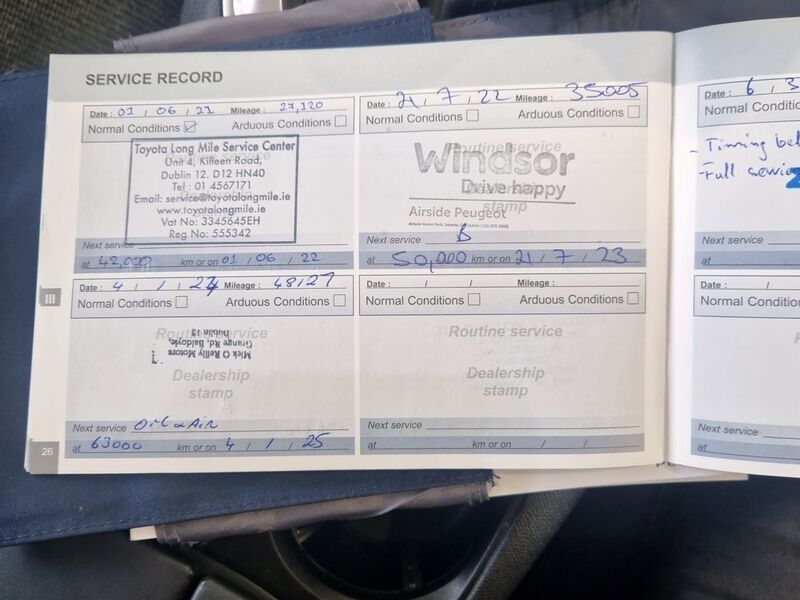 SERVICE RECORD
Date : 01 / 06 / 21 Mileage : 27,120
Normal Conditions Arduous Conditions
Routine service
Toyota Long Mile Service Center
Unit 4, Killeen Road,
Dublin 12. D12 HN40
Tel : 01 4567171
Email: service@toyotalongmile.ie
www.toyotalongmile.ie
Vat No: 3345645EH
Reg No: 555342
Next service
at 42,000 km or on 01 / 06 / 22
Date : 21 / 7 / 22 Mileage : 35005
Normal Conditions Arduous Conditions
Routine service
Windsor
Drive happy
stamp
Airside Peugeot
Next service B
at 50,000 km or on 21 / 7 / 23
Date : 4 / 1 / 24 Mileage : 48,27
Normal Conditions Arduous Conditions
Routine service
Mick O Reilly Motors
Grange Rd, Baldoyle,
Dublin 13
Dealership
stamp
Next service Oil & Air
at 63000 km or on 4 / 1 / 25
Date : / / Mileage :
Normal Conditions Arduous Conditions
Routine service
Dealership
stamp
Next service
at km or on / /
Date : 6 / 3
Normal Conditions
- Timing bel
- Full servic
Next service
at
Date : /
Normal Conditions
Next service
at
III
26